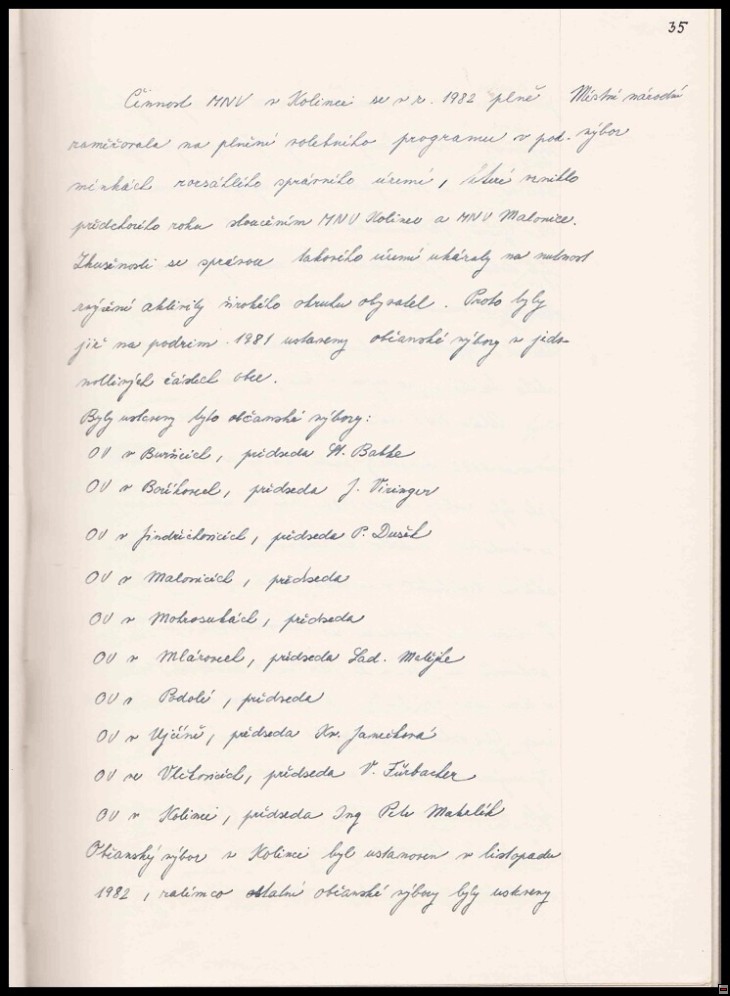 35
Činnost MNV v Kolinci se v r. 1982 plně
Místní národní
výbor
zaměřovala na plnění volebního programu v pod-
mínkách rozsáhlého správního území, které vzniklo
předchozího roku sloučením MNV Kolinec a MNV Malonice.
Zkušenosti se správou takového území ukázaly na nutnost
zvýšení aktivity širokého okruhu obyvatel. Proto byly
již na podzim 1981 ustaveny občanské výbory v jedno-
notlivých částech obce.
Byly ustaveny tyto občanské výbory:
OV v Buršicích, předseda St. Babke
OV v Boříkovech, předseda J. Viringer
OV v Jindřichovicích, předseda P. Dušek
OV v Malonicích, předseda
OV v Mokrosukách, předseda
OV v Mlázovech, předseda Lad. Matějka
OV v Podolí, předseda
OV v Ujčíně, předseda Kv. Janečková
OV ve Vlčkovicích, předseda V. Fürbacher
OV v Kolinci, předseda Ing Petr
Občanský výbor v Kolinci byl ustanoven v listopadu
1982, zatímco ostatní občanské výbory byly ustaveny